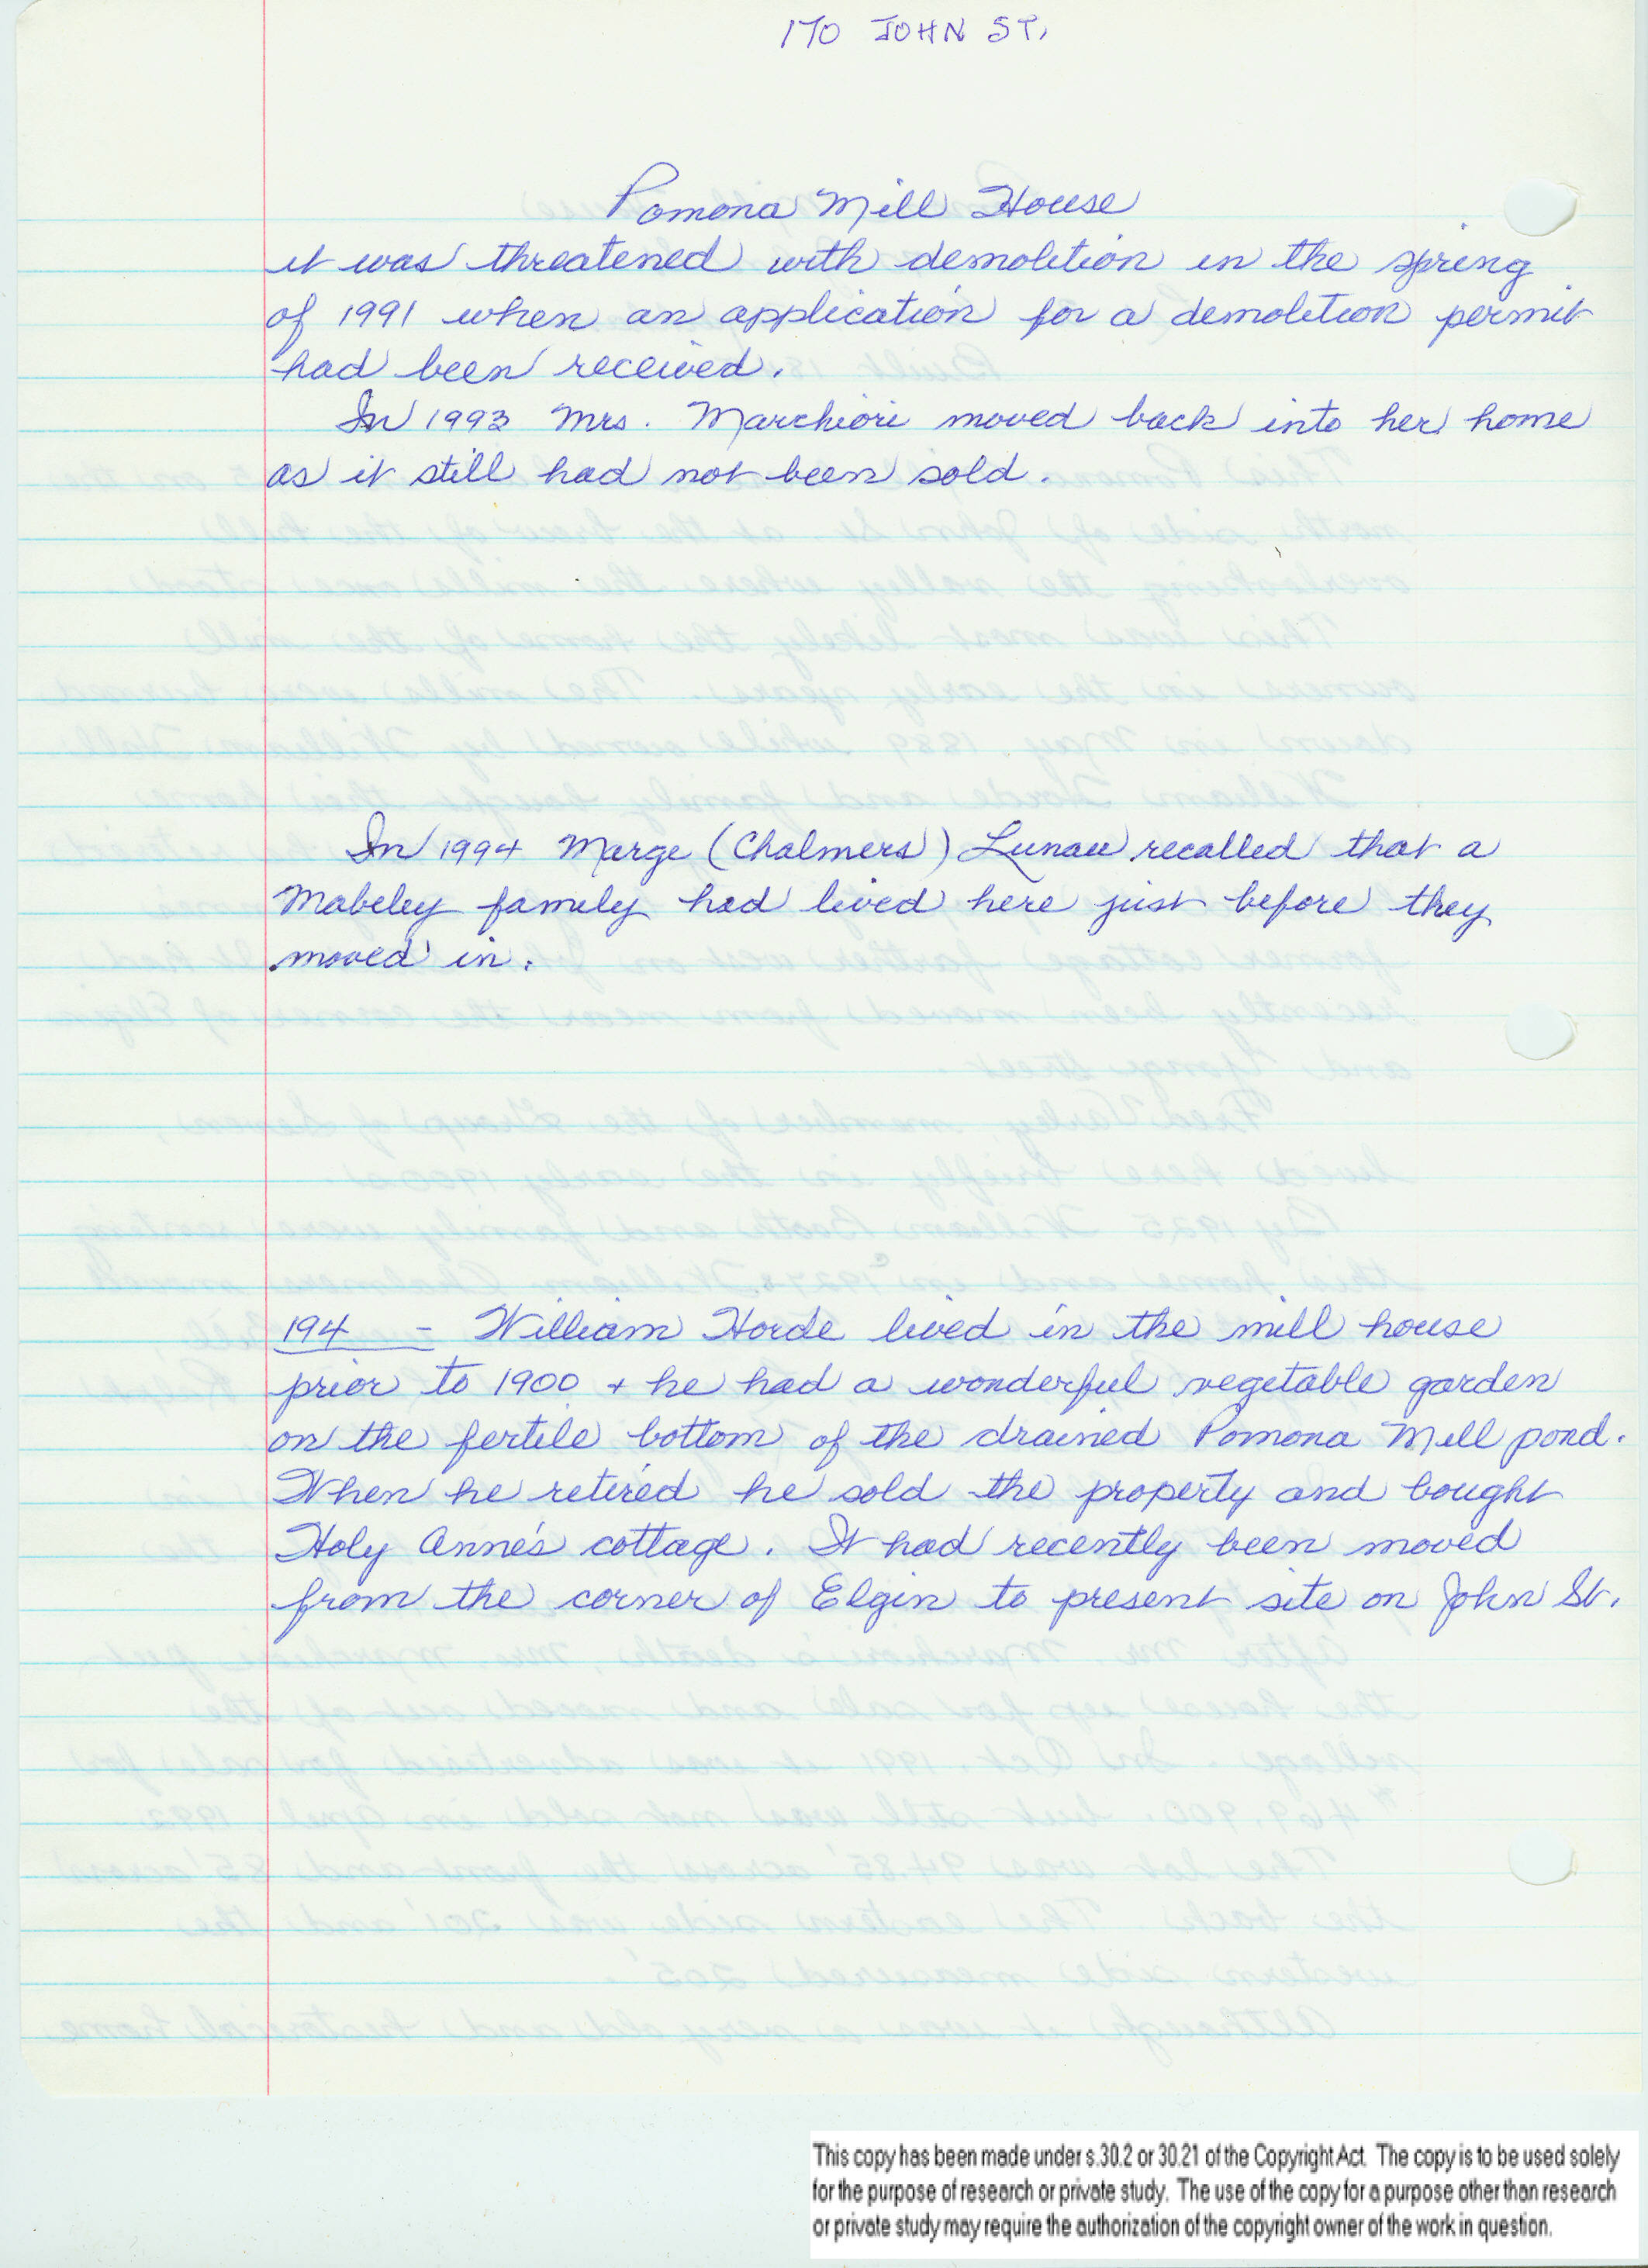 170 JOHN ST.
Pomona Mill House
it was threatened with demolition in the spring
of 1991 when an application for a demolition permit
had been received.
In 1993 Mrs. Marchiori moved back into her home
as it still had not been sold.
In 1994 Marge (Chalmers) Lunau recalled that a
Mabeley family had lived here just before they
moved in.
194 - William Horde lived in the mill house
prior to 1900 + he had a wonderful vegetable garden
on the fertile bottom of the drained Pomona Mill pond.
When he retired he sold the property and bought
Holy Anne's cottage. It had recently been moved
from the corner of Elgin to present site on John St.
This copy has been made under s.30.2 or 30.21 of the Copyright Act. The copy is to be used solely
for the purpose of research or private study. The use of the copy for a purpose other than research
or private study may require the authorization of the copyright owner of the work in question.